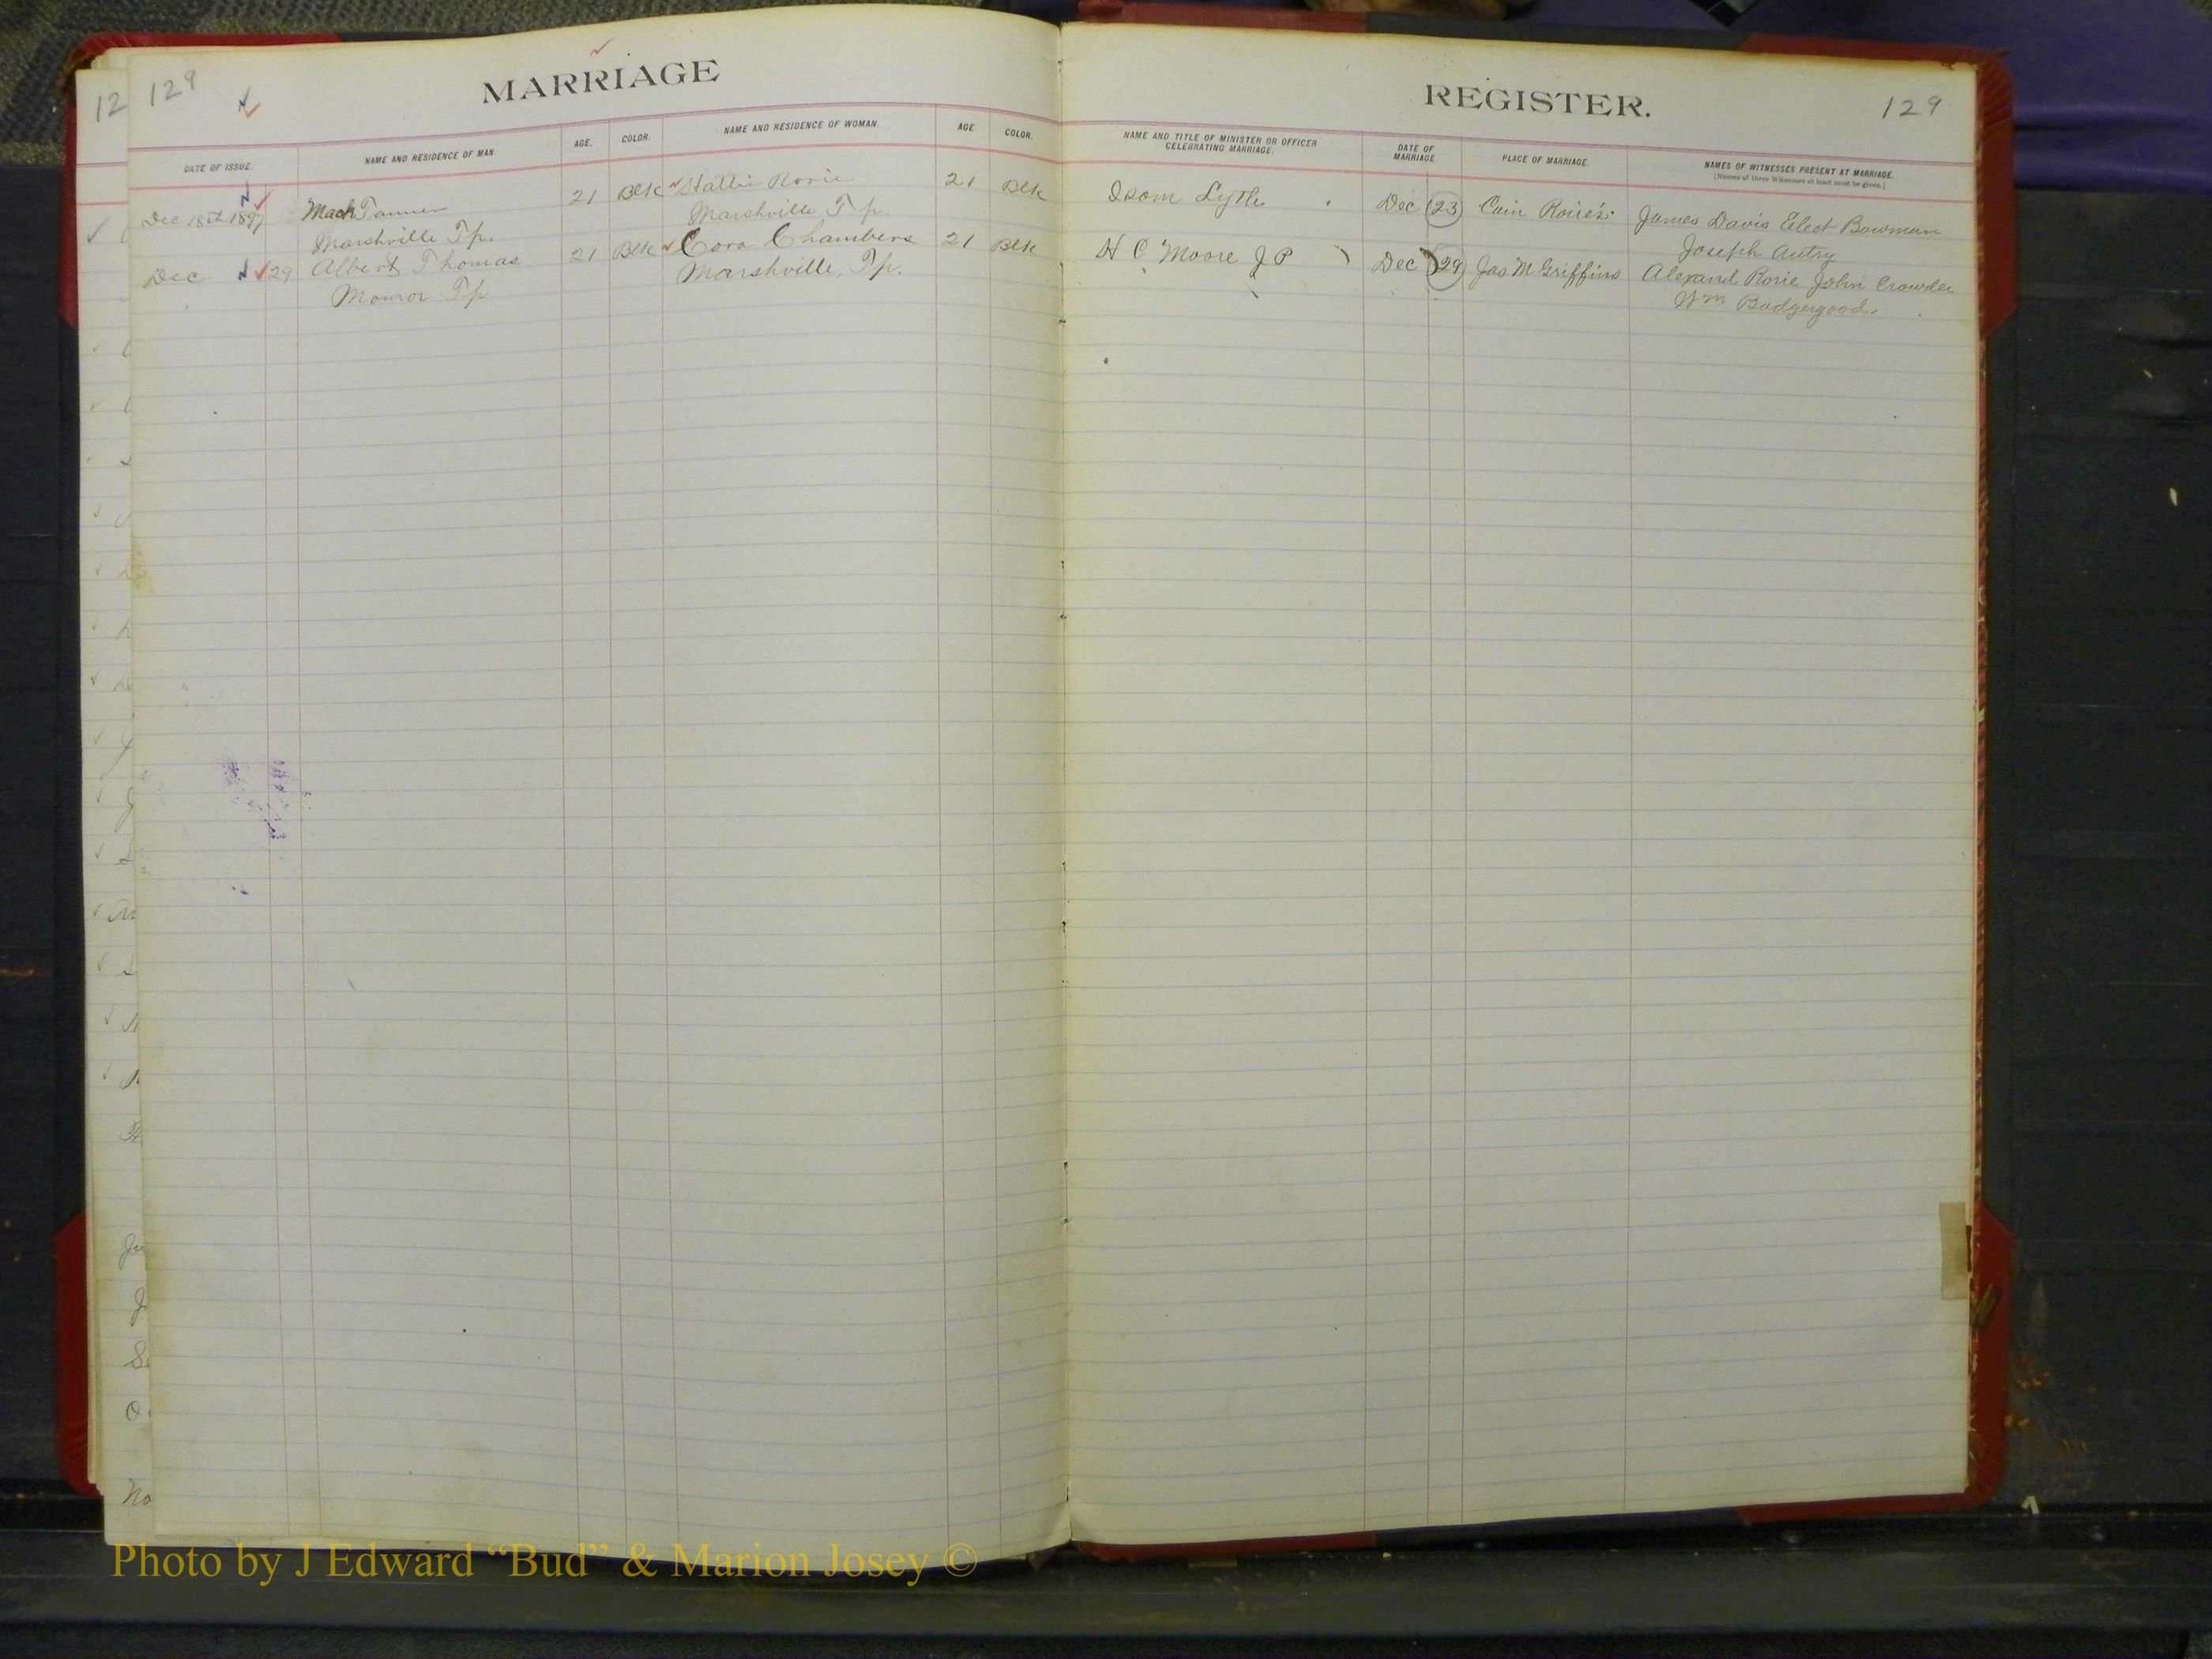 12
129
MARRIAGE
DATE OF ISSUE.
NAME AND RESIDENCE OF MAN.
AGE.
COLOR.
NAME AND RESIDENCE OF WOMAN.
AGE.
COLOR.
Dec 18th 1897
Mack Tanner
21
Blk
Rorie
21
Blk
Marshville Tp.
Marshville Tp.
Dec 29
Albert Thomas
21
Blk
Cora Chambers
21
Blk
Monroe Tp
Marshville, Tp.
REGISTER.
129
NAME AND TITLE OF MINISTER OR OFFICER
CELEBRATING MARRIAGE.
DATE OF
MARRIAGE
PLACE OF MARRIAGE.
NAMES OF WITNESSES PRESENT AT MARRIAGE.
[Names of three Witnesses at least must be given.]
Isom Lytle
Dec 23
Cain Rorie's
James Davis Elect Bowman
Joseph Autry
H C Moore J P
Dec 29
Jas M Griffins
Rorie John Crowder
Wm
Photo by J Edward “Bud” & Marion Josey ©